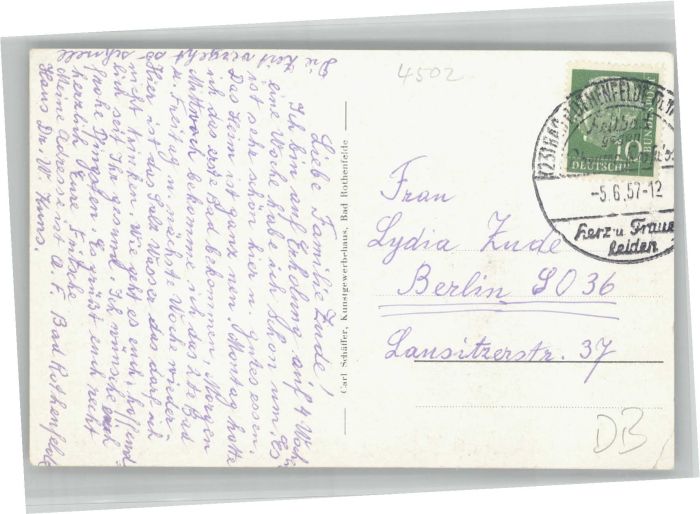 Liebe Familie Zude!
Ich bin auf Erholung auf 4 Woch.
eine Woche habe ich schon um. Es
ist sehr schön hier. Gutes essen,
Das Heim ist ganz neu. Montag hatte
ich das erste Bad bekommen, Morgen
Mittwoch bekomme ich das 2te Bad
u. Freitag u. nächste Woche wieder
Hier ist das Salz Wasser das darf ich
nicht trinken. Wie geht es euch, hoffend
lich seit Ihr gesund. Ich wünsche euch
frohe Pfingsten. Es grüßt euch recht
herzlich Eure
Meine Adresse ist O. F. Bad Rothenfelde
Haus Dr. W.
Die Zeit vergeht so schnell
Carl Schäffer, Kunstgewerbehaus, Bad Rothenfelde
4502
Frau
Lydia Zude
Berlin SO 36
Lausitzerstr. 37
DB
10
DEUTSCHE
BUNDESPOST
(23) BAD ROTHENFELDE
Heilbad
gegen
-5.6.57-12
Herz u. Frauen
leiden